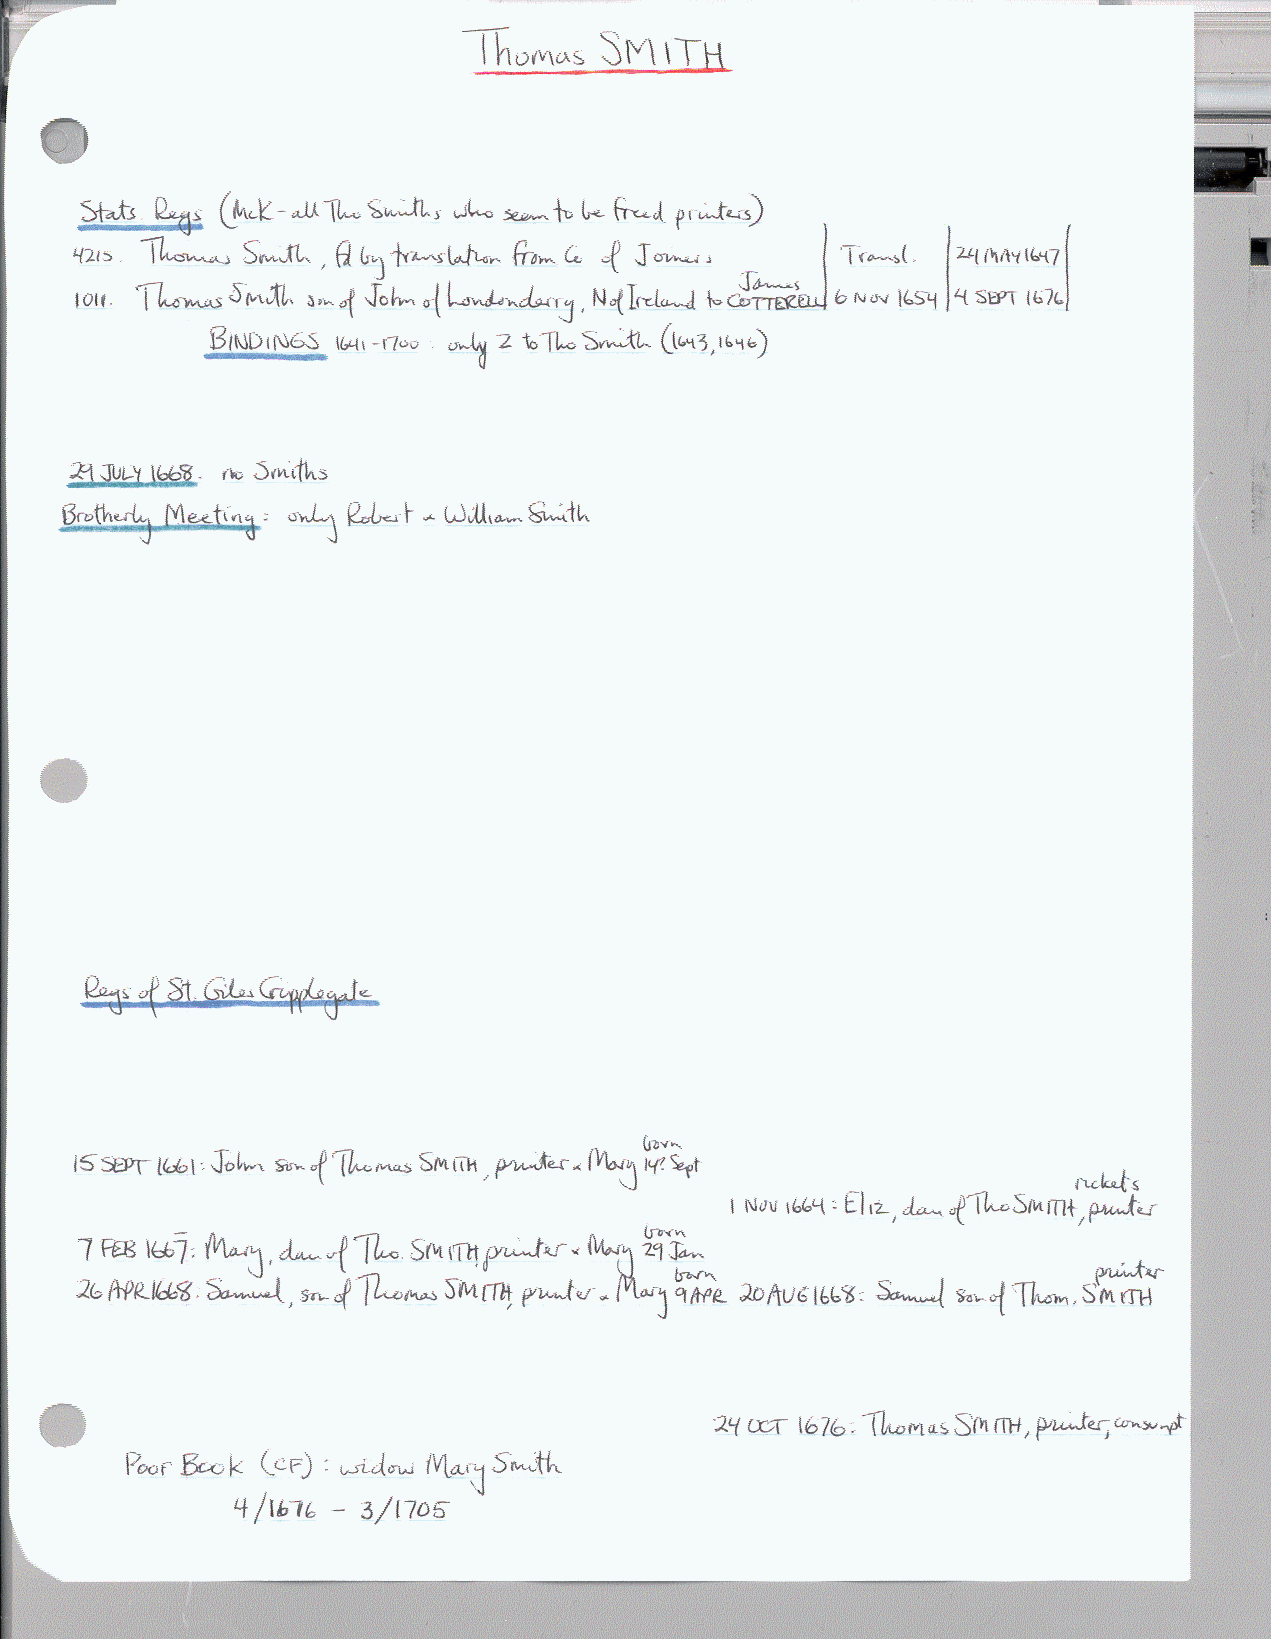 Thomas SMITH
Stats Regs (McK - all Tho Smiths who seem to be freed printers)
4215. Thomas Smith, fd by translation from Co of Joiners | Transl. | 24 MAY 1647 |
James
1011. Thomas Smith son of John of Londonderry, N of Ireland to COTTERELL | 6 NOV 1654 | 4 SEPT 1676 |
BINDINGS 1641-1700: only 2 to Tho Smith (1643, 1646)
29 JULY 1668. no Smiths
Brotherly Meeting: only Robert & William Smith
Regs of St. Giles Cripplegate
born
15 SEPT 1661: John son of Thomas SMITH, printer & Mary 14? Sept
rickets
1 NOV 1664: Eliz, dau of Tho SMITH, printer
born
7 FEB 1667: Mary, dau of Tho. SMITH, printer & Mary 29 Jan
born
printer
26 APR 1668. Samuel, son of Thomas SMITH, printer & Mary 9 APR 20 AUG 1668: Samuel son of Thom. SMITH
24 OCT 1676: Thomas SMITH, printer, consumpt
Poor Book (CF): widow Mary Smith
4/1676 - 3/1705